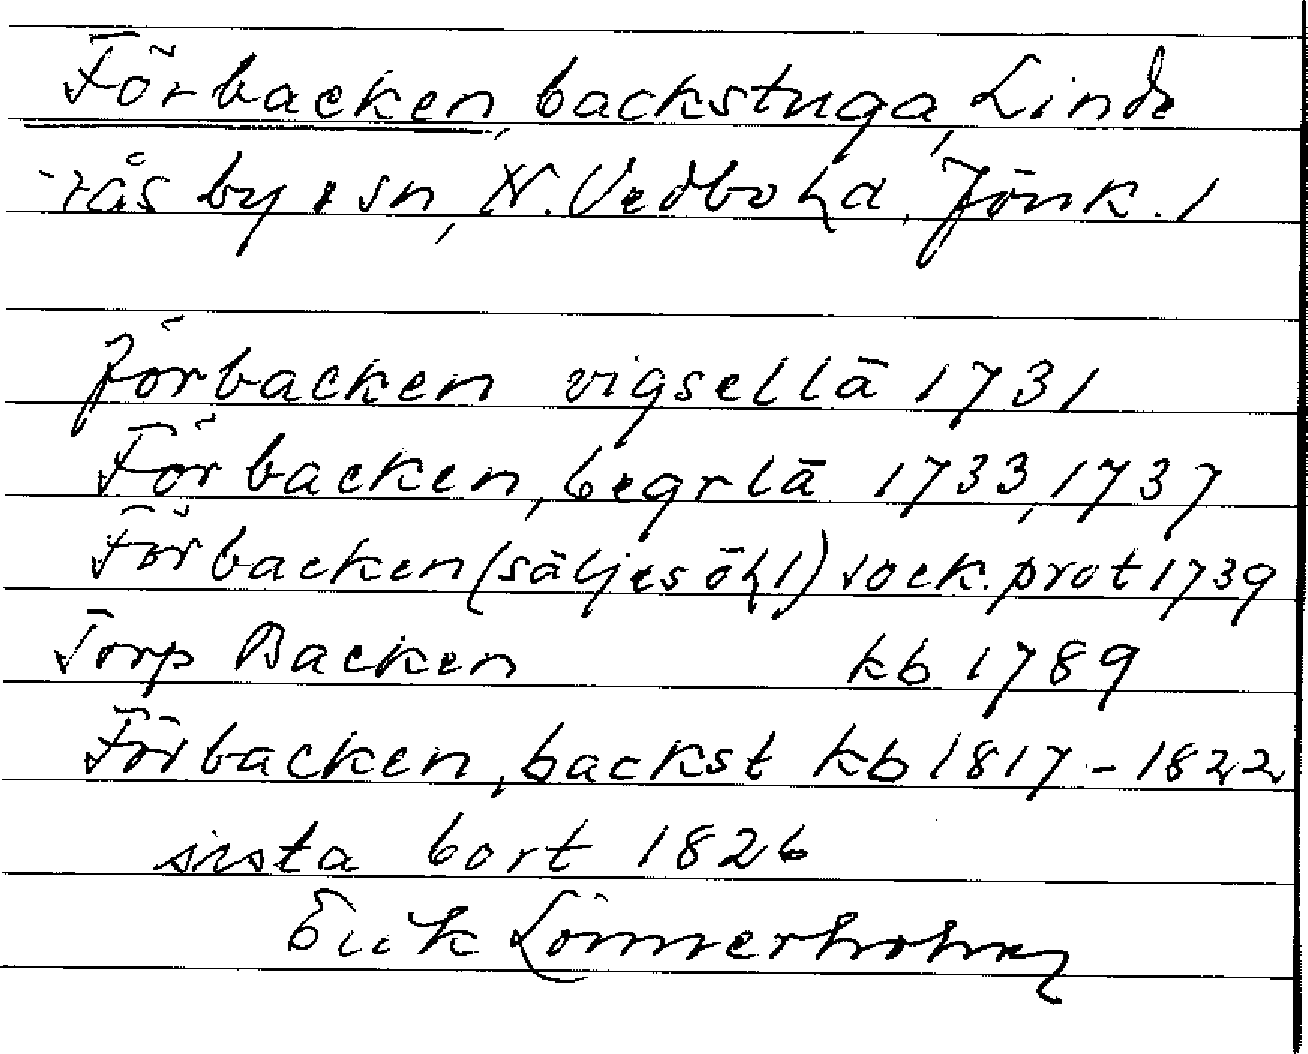 Förbacken, backstuga, Linde
rås by o sn, N. Vedbo hd. Jönk. l
Förbacken vigsellä 1731
Förbacken, begrlä 1733, 1737
Förbacken (säljes öhl) sock. prot 1739
Torp Backen kb 1789
Förbacken, backst kb 1817-1822
sista bort 1826
Erik Lönnerholm